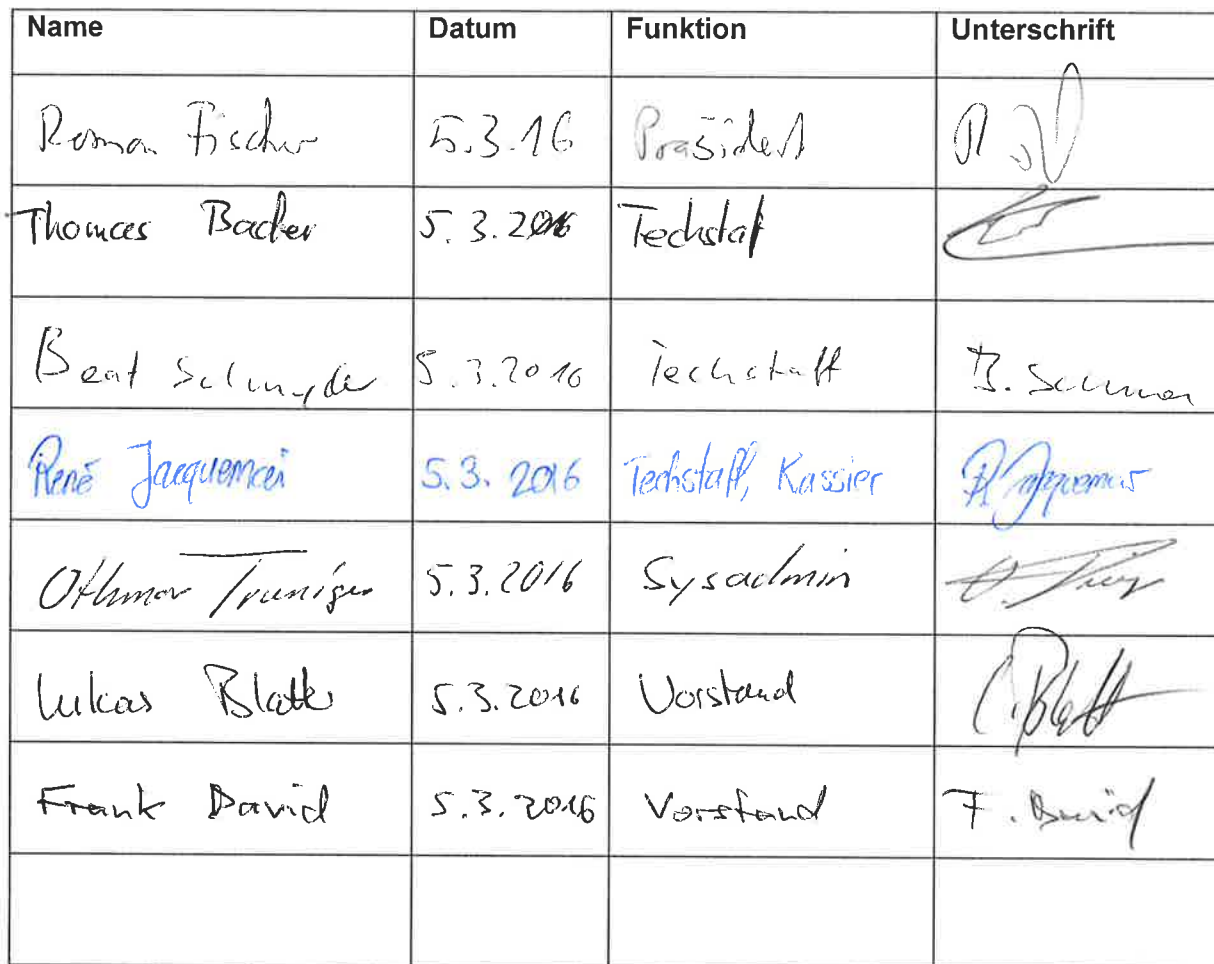 Name Datum Funktion Unterschrift
Roman Fischer 5.3.16 Präsident
Thomas Bader 5.3.2016 Techstaf
Beat Schnyder 5.3.2016 Techstaff B.
René 5.3.2016 Techstaff, Kassier
Othmar Truniger 5.3.2016 Sysadmin
Lukas Blatter 5.3.2016 Vorstand
Frank David 5.3.2016 Vorstand F. David